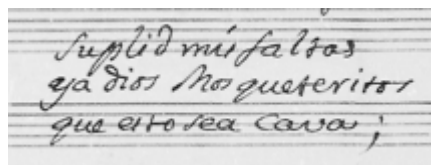 suplid mis faltas
ya dios Mosqueteritos
que esto sea Cava;